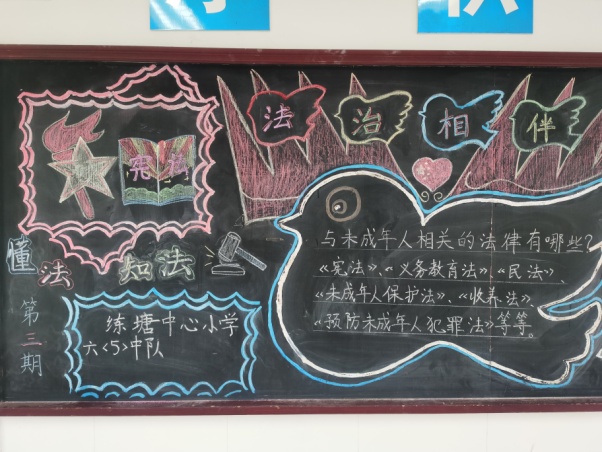 法治相伴
宪法
懂法知法
第三期
练塘中心小学
六<5>中队
与未成年人相关的法律有哪些?
《宪法》、《义务教育法》、《民法》、
《未成年人保护法》、《收养法》、
《预防未成年人犯罪法》等等。